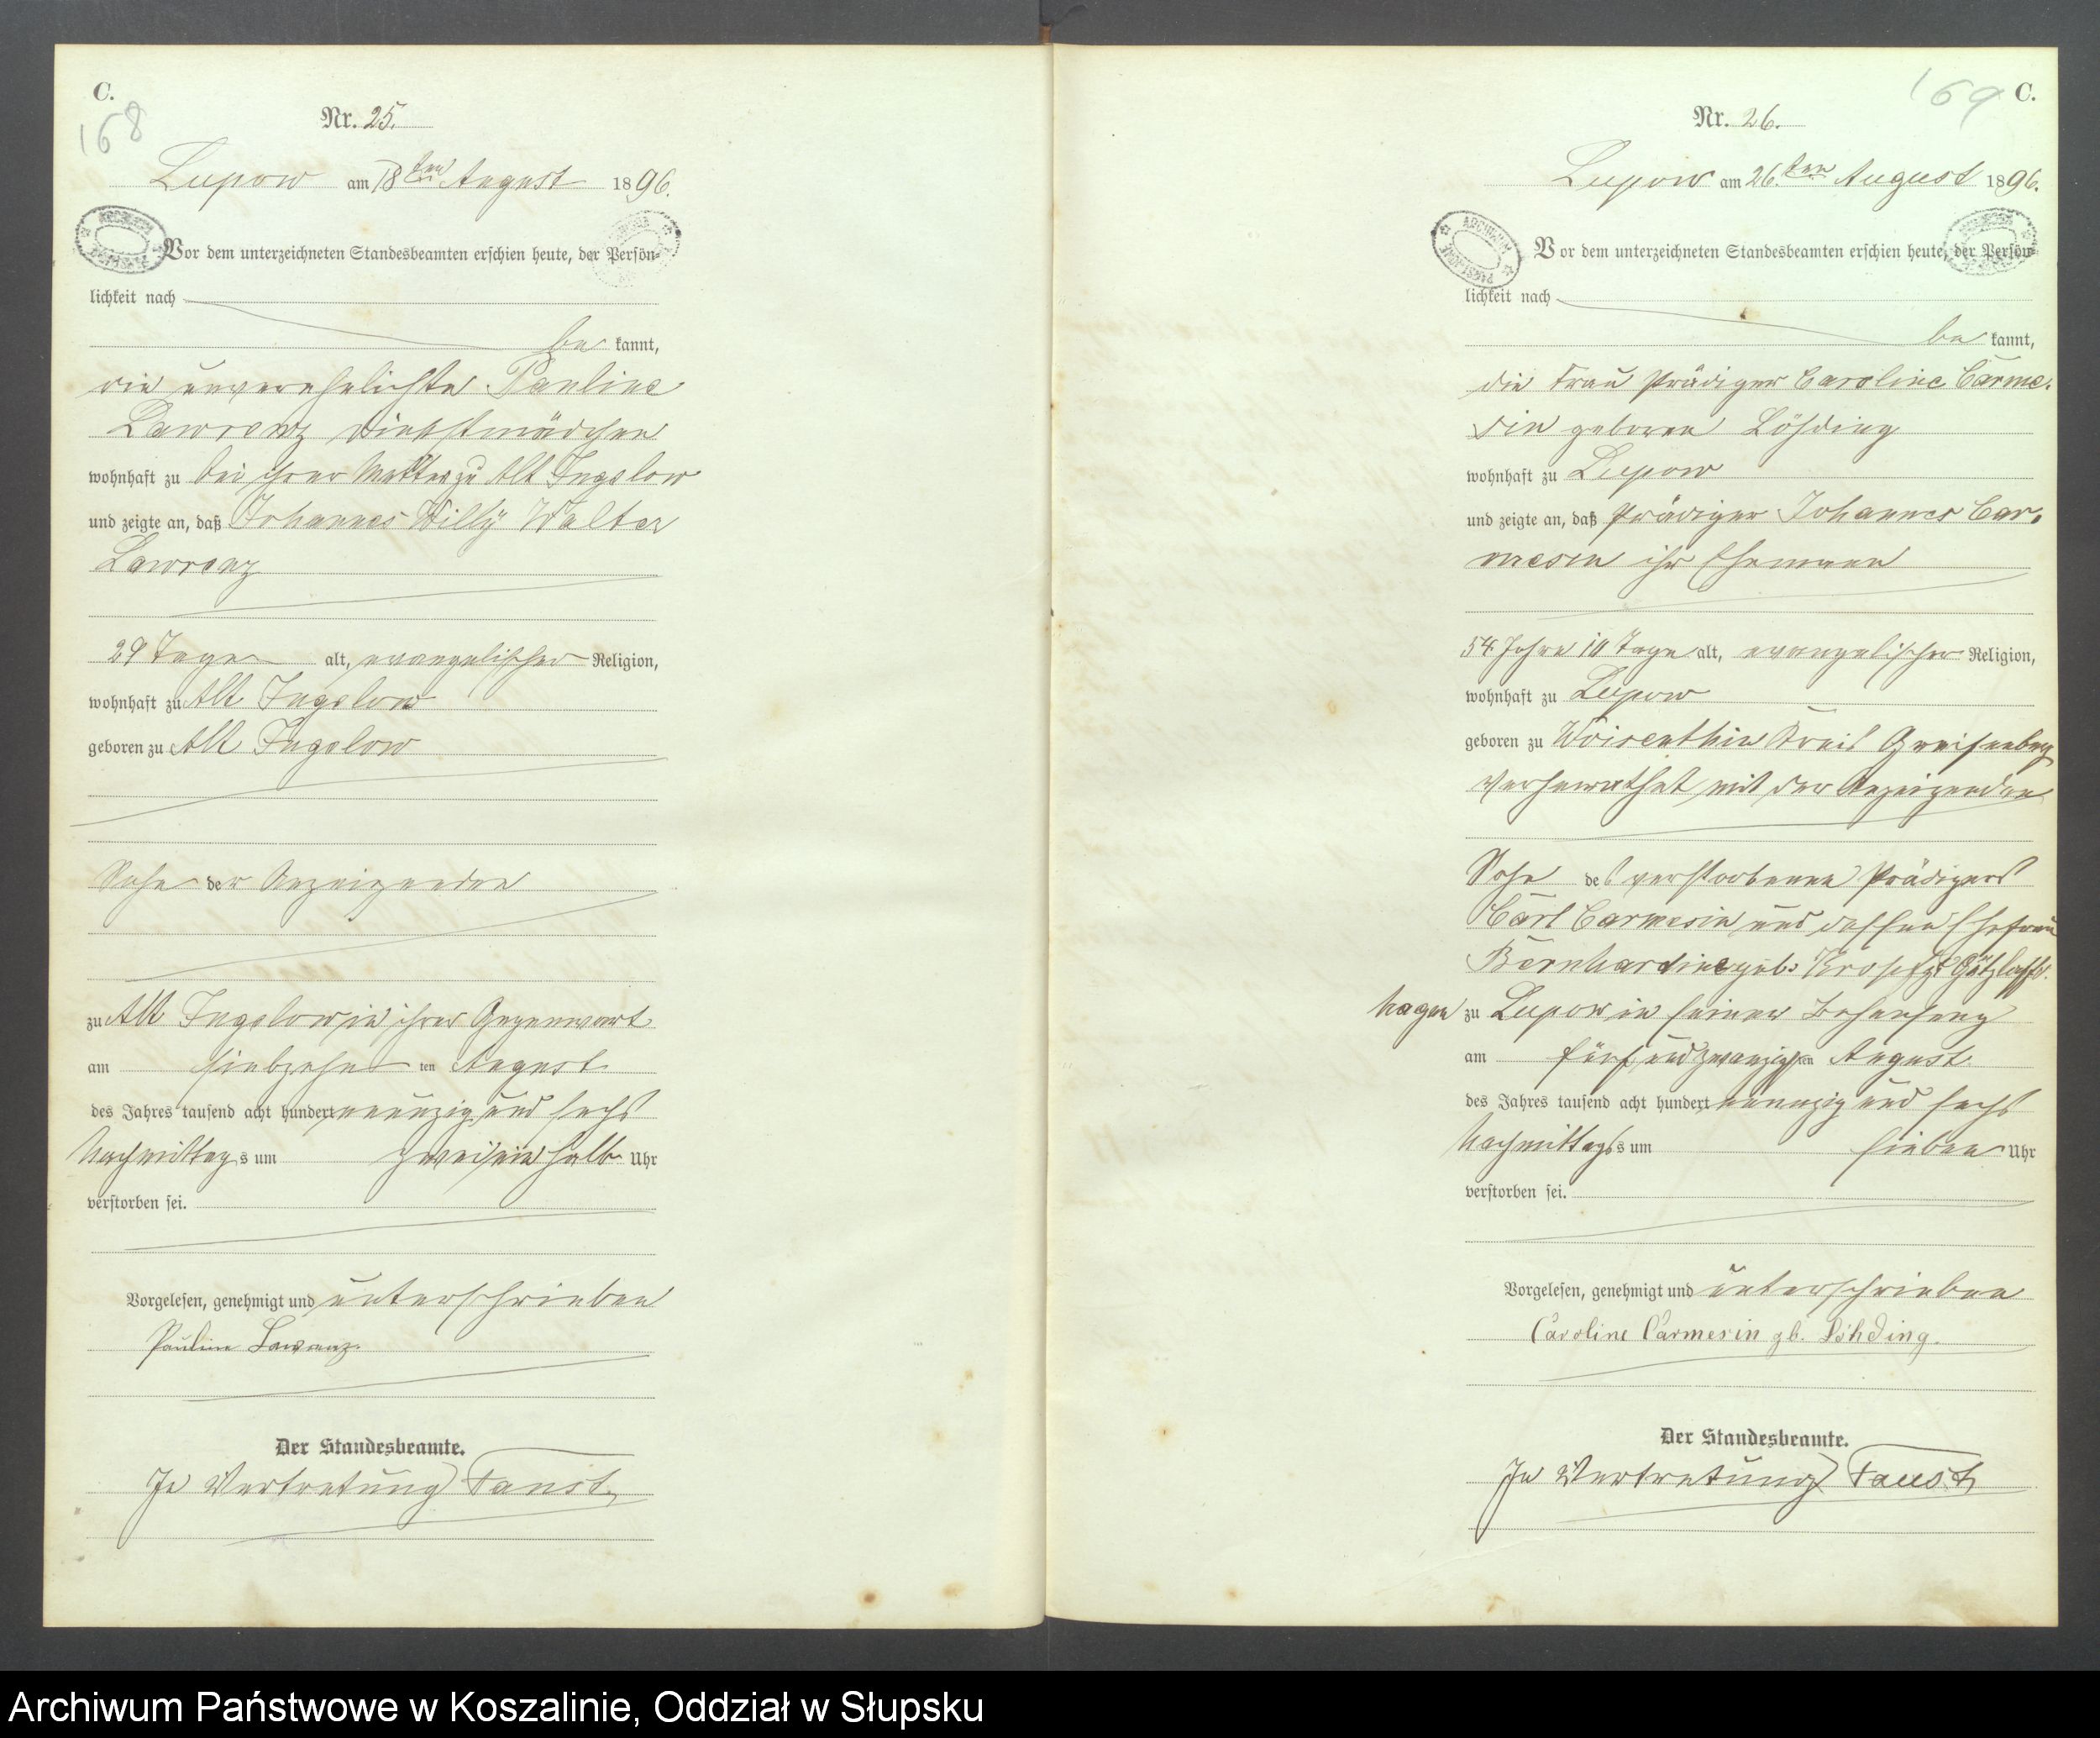 C.
168
Nr. 25.
Lupow am 18ten August 1896.
Vor dem unterzeichneten Standesbeamten erschien heute, der Persön-
lichkeit nach
be kannt,
die unverehelichte Pauline
Lawrenz Dienstmädchen
wohnhaft zu bei ihrer Mutter zu Alt Jugelow
und zeigte an, daß Johannes Willÿ Walter
Lawrenz
29 Tage alt, evangelischer Religion,
wohnhaft zu Alt Jugelow
geboren zu Alt Jugelow
Sohn der Anzeigenden
zu Alt Jugelow, in ihrer Gegenwart
am siebzehn ten August
des Jahres tausend acht hundert neunzig und sechs
Nachmittags um zwei ein halb Uhr
verstorben sei.
Vorgelesen, genehmigt und unterschrieben
Pauline Lawrenz
Der Standesbeamte.
In Vertretung Faust
169 C.
Nr. 26.
Lupow am 26.ten August 1896.
Vor dem unterzeichneten Standesbeamten erschien heute, der Persön-
lichkeit nach
be kannt,
die Frau Prädiger Caroline Carme-
sin geboren Löhding
wohnhaft zu Lupow
und zeigte an, daß Prädiger Johannes Car-
mesin ihr Ehemann
54 Jahre 10 Tage alt, evangelischer Religion,
wohnhaft zu Lupow
geboren zu Woisenthin Kreis Greifenberg
verheirathet mit der Anzeigenden
Sohn des verstorbenen Prädigers
Carl Carmesin und dessen Ehefrau
Bernhardine geb:
hagen zu Lupow in seiner Behausung
am fünf und zwanzigsten August
des Jahres tausend acht hundert neunzig und sechs
Nachmittags um sieben Uhr
verstorben sei.
Vorgelesen, genehmigt und unterschrieben
Caroline Carmesin gb. Löhding.
Der Standesbeamte.
In Vertretung Faust
Archiwum Państwowe w Koszalinie, Oddział w Słupsku